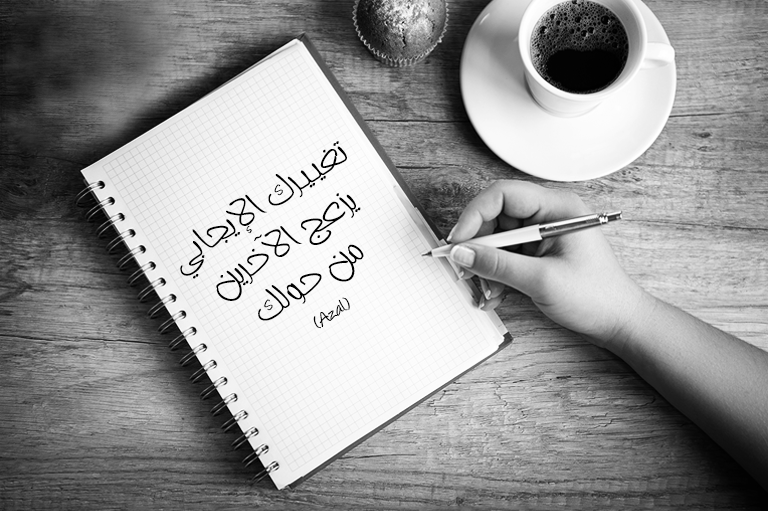 تغييرك الإيجابي
يزعج الآخرين
من حولك
(Azal)